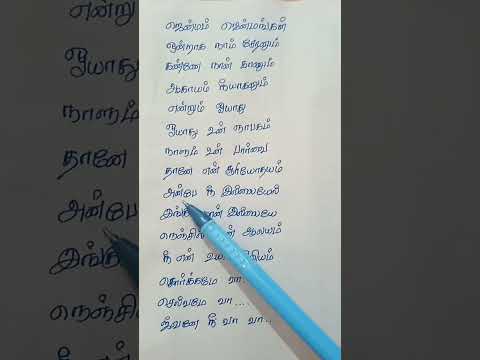 ஜென்மம் ஜென்மங்கள்
ஒன்றாக நாம் சேரனும்
கண்ணே நான் காணும்
ஆகாயம் நீயாகனும்
என்றும் ஓயாது
ஓயாது உன் ஞாபகம்
நாளும் உன் பார்வை
தானே என் சூர்யோதயம்
அன்பே நீ இல்லையேல்
இல்லையே
ஆலயம்
நீ என்
சொர்க்கமே வா...
செல்வமே வா....
ஜீவனே நீ வா வா...